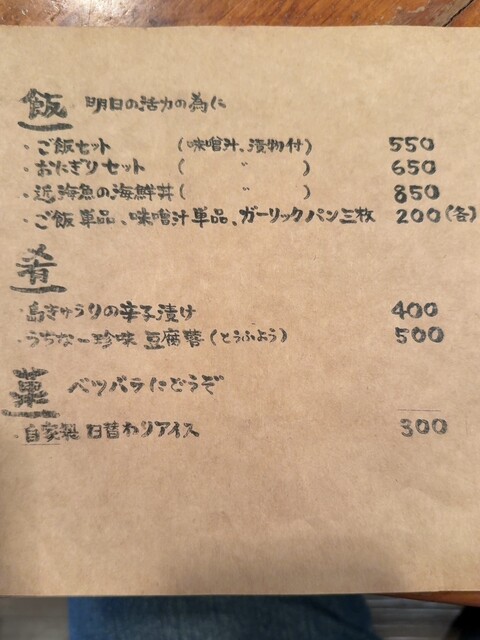 飯 明日の活力の為に
・ご飯セット (味噌汁、漬物付) 550
・おにぎりセット ( 〃 ) 650
・近海魚の海鮮丼 ( 〃 ) 850
・ご飯単品、味噌汁単品、ガーリックパン三枚 200(各)
肴
・島きゅうりの辛子漬け 400
・うちなー珍味 豆腐蓉(とうふよう) 500
菓 ベツバラにどうぞ
・自家製 日替わりアイス 300